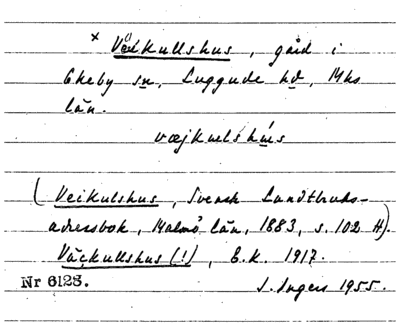 × Väikullshus, gård i
Ekeby sn, Luggude hd, Mhs
län.
(Veikulshus, Svensk Landtbruks-
adressbok, Malmö län, 1883, s. 102 H).
Väckullshus (!), E.K. 1917.
Nr 6123. S. Ingers 1955.